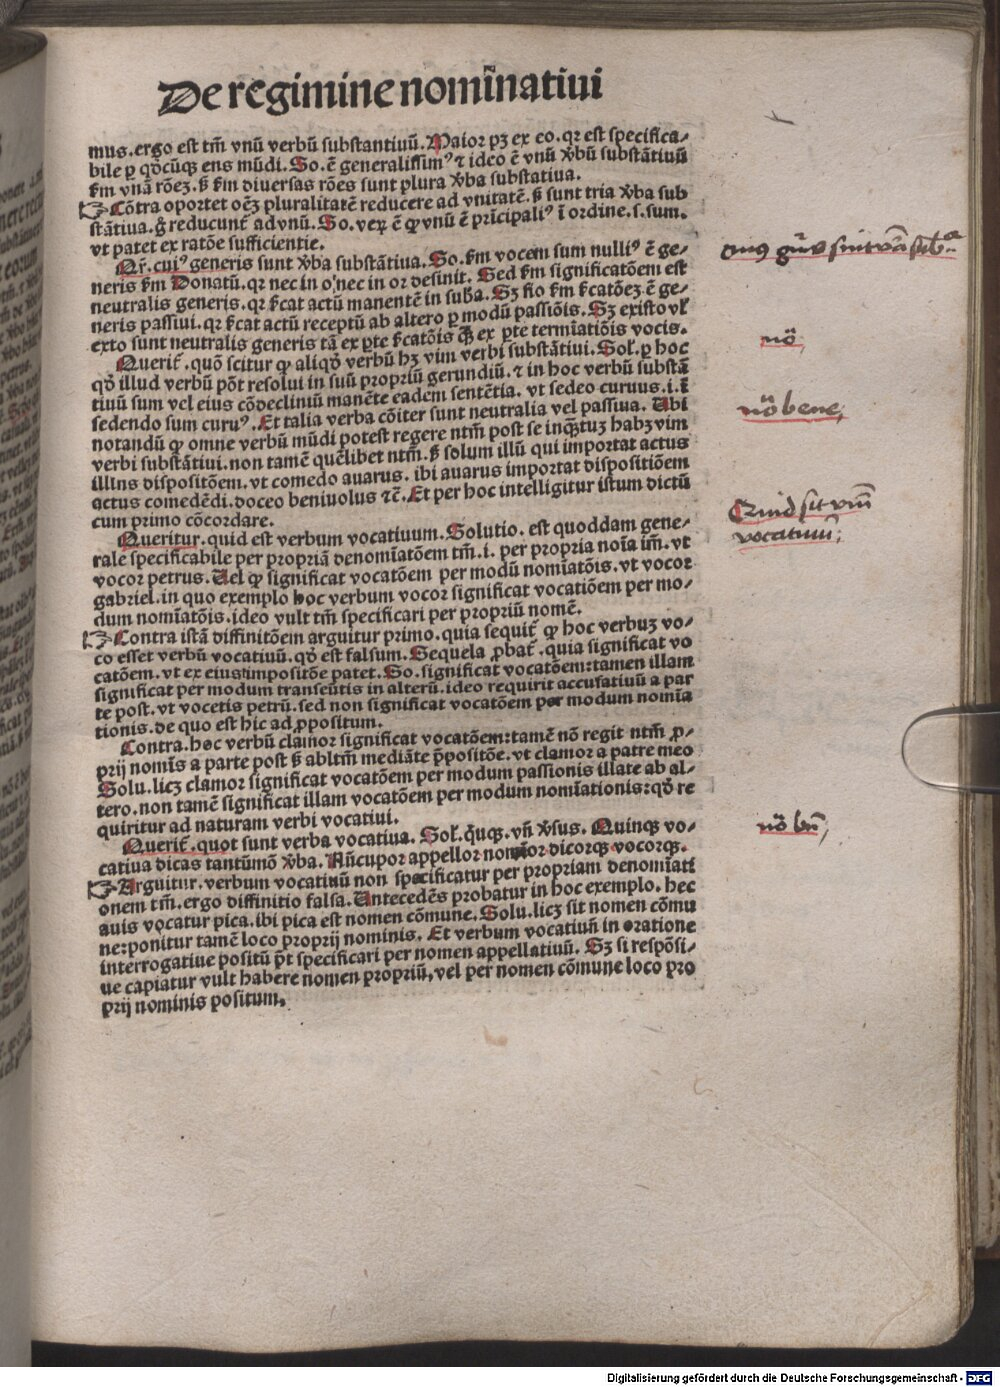 De regimine nomīnatiui
mus. ergo est tm̄ vnū verbū substantiuū. Maior pꝫ ex eo. qꝛ est specifica⸗
bile ꝑ qd̓cūqꝫ ens mūdi. So. ē generalissimꝰ ⁊ ideo ē vnū ꝟbū substātiuū
ẜm vnā rōeꝫ. ꝫ ẜm diuersas rōes sunt plura ꝟba substātiua.
Cōtra oportet oēꝫ pluralitatē reducere ad vnitatē. ꝫ sunt tria ꝟba sub
stātiua. gͦ reducunt̄ ad vnū. So. veꝝ ē ꝙ vnū ē prīcipaliꝰ ī ordine. s. sum.
vt patet ex ratōe sufficientie.
Qr̄. cuiꝰ generis sunt ꝟba substātiua. So. ẜm vocem sum nulliꝰ ē ge⸗
neris ẜm Donatū. qꝛ nec in o. nec in or desinit. Sed ẜm significatōem est
neutralis generis. qꝛ ẜcat actū manentē in suba. Sꝫ fio ẜm ẜcatōeꝫ ē ge⸗
neris passiui. qꝛ ẜcat actū receptū ab altero ꝑ modū passiōis. Sꝫ existo vł
exto sunt neutralis generis tā ex ꝑte ẜcatōis qꝫ ex ꝑte termīatiōis vocis.
Querit̄. quō scitur ꝙ aliqd̓ verbū hꝫ vim verbi substātiui. Sol̄. ꝑ hoc
qd̓ illud verbū pōt resolui in suū propriū gerundiū. ⁊ in hoc verbū substā
tiuū sum vel eius cōdecliniū manēte eadem sentētia. vt sedeo curuus. i. ī
sedendo sum curuꝰ. Et talia verba cōiter sunt neutralia vel passiua. Ubi
notandū ꝙ omne verbū mūdi potest regere ntm̄ post se inqͣꝫtuꝫ habꝫ vim
verbi substātiui. non tamē quēlibet ntm̄. ꝫ solum illū qui importat actus
illius dispositōem. vt comedo auarus. ibi auarus importat dispositiōem
actus comedēdi. doceo beniuolus ⁊ē. Et per hoc intelligitur istum dictū
cum primo cōcordare.
Queritur. quid est verbum vocatiuum. Solutio. est quoddam gene⸗
rale specificabile per propriā denomīatōem tm̄. i. per propria noīa im̄. vt
vocor petrus. Uel ꝙ significat vocatōem per modū nomīatōis. vt vocor
gabriel. in quo exemplo hoc verbum vocor significat vocatiōem per mo⸗
dum nomīatōis. ideo vult tm̄ specificari per propriū nomē.
Contra istā diffinitōem arguitur primo. quia sequit̄ ꝙ hoc verbuꝫ vo⸗
co esset verbū vocatiuū. qd̓ est falsum. Sequela ꝓbat̄. quia significat vo
catōem. vt ex eius impositōe patet. So. significat vocatōem: tamen illam
significat per modum transeūtis in alterū. ideo requirit accusatiuū a par
te post. vt vocetis petrū. sed non significat vocatōem per modum nomīa
tionis. de quo est hic ad ꝓpositum.
Contra. hoc verbū clamor significat vocatōem: tamē nō regit ntm̄ ꝓ⸗
prij nomīs a parte post ꝫ abltm̄ mediāte p̄positōe. vt clamor a patre meo
Solu. licꝫ clamor significat vocatōem per modum passionis illate ab al⸗
tero. non tamē significat illam vocatōem per modum nomīationis: qd̓ re
quiritur ad naturam verbi vocatiui.
Querit̄. quot sunt verba vocatiua. Sol̄. q̄uqꝫ. vn̄ ꝟsus. Quinqꝫ vo⸗
catiua dicas tantūmō ꝟba. Nūcupor appellor nominor dicorqꝫ vocorqꝫ.
Arguitur. verbum vocatiuū non specificatur per propriam denomīati
onem tm̄. ergo diffinitio falsa. Antecedēs probatur in hoc exemplo. hec
auis vocatur pica. ibi pica est nomen cōmune. Solu. licꝫ sit nomen cōmu
ne: ponitur tamē loco proprij nominis. Et verbum vocatiuū in oratione
interrogatiue positū p̄t specificari per nomen appellatiuū. Sꝫ si respōsi⸗
ue capiatur vult habere nomen propriū, vel per nomen cōmune loco pro
prij nominis positum.
cuiꝰ gn̄is sint
nō
nō bene
Quid sit vm̄
vocatiuū
nō bn̄
Digitalisierung gefördert durch die Deutsche Forschungsgemeinschaft - DFG